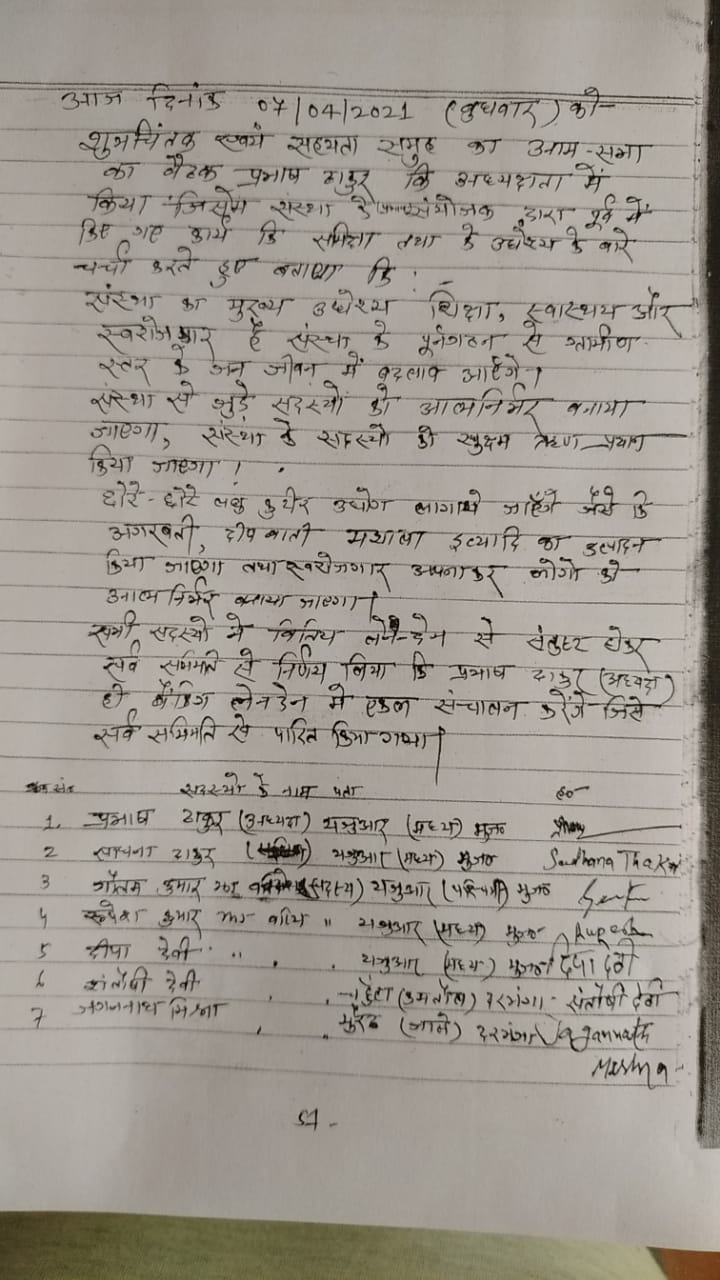 आज दिनांक 07/04/2021 (बुधवार) को
शुभचिंतक स्वयं सहयता समुह का आम-सभा
का बैठक प्रभाष ठाकुर कि अध्यक्षता में
किया जिसमें संस्था के संयोजक द्वारा पूर्व में
किए गए कार्य कि समिक्षा तथा के उद्येश्य के बारे
चर्चा करते हुए बताया कि :
संस्था का मुख्य उद्येश्य शिक्षा, स्वास्थय और
स्वरोजगार है संस्था के पूर्नगठन से ग्रामीण
स्तर के जन जीवन में बदलाव आएंगे।
संस्था से जुड़े सदस्यों को आत्मनिर्भर बनाया
जाएगा, संस्था के सदस्यो को सुक्ष्म ऋण प्रदान
किया जाएगा।
छोटे-छोटे लघु कुटीर उद्योग लागाये जाएंगे जैसे कि
अगरबत्ती, दीप बाती मशाला इत्यादि का उत्पादन
किया जाएगा तथा स्वरोजगार अपनाकर लोगो को
आत्म निर्भर बनाया जाएगा।
सभी सदस्यो ने वितिय लेन-देन से संतुष्ट होकर
सर्व सम्मिति से निर्णय लिया कि प्रभाष ठाकुर (अध्यक्ष)
ही बैंकिंग लेनदेन में एकल संचालन करेंगे जिसे
सर्व सम्मिति से पारित किया गया।
सदस्यो के नाम पता ह०
1. प्रभाष ठाकुर (अध्यक्ष) यजुआर (मध्य) मुज०
2 साधना ठाकुर यजुआर (मध्य) मुज० Sadhana Thakur
3 गौतम कुमार झा (सदस्य) यजुआर (पश्चिमी) मुज०
4 रूपेश कुमार झा " यजुआर (मध्य) मुज० Rupesh
5 दीपा देवी " " यजुआर (मध्य) मुज० दिपा देवी
6 संतोषी देवी दरभंगा संतोषी देवी
7 जगन्नाथ मिश्रा (जाले) दरभंगा Jagannath
Mishra